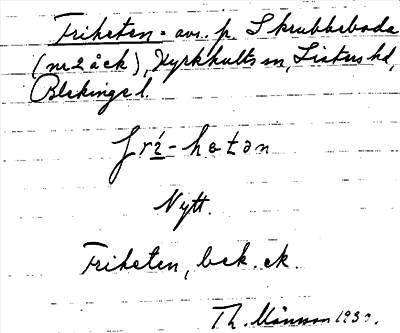 Friheten = avs. p. Skrubbeboda
(nr 2 åck), Kyrkhults sn, Listers hd,
Blekinge l.
frí-hetən
Nytt.
Friheten, bek. ck.
Th. Månsson 1930.